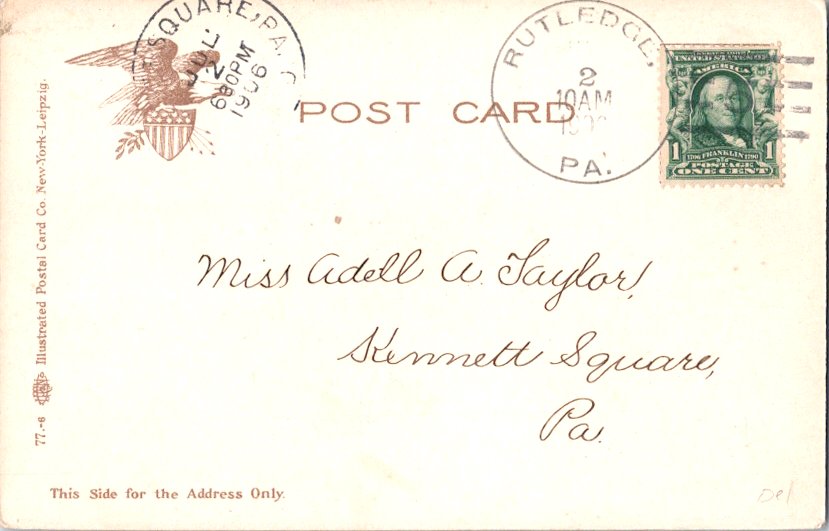 SQUARE, PA.
JUL
2
630PM
1906
POST CARD
RUTLEDGE,
2
10AM
PA.
UNITED STATES OF
AMERICA
1 1706 FRANKLIN 1790 1
POSTAGE
ONE CENT
Miss Adell A. Taylor,
Kennett Square,
Pa.
77.-6 Illustrated Postal Card Co. New-York-Leipzig.
This Side for the Address Only.
Del